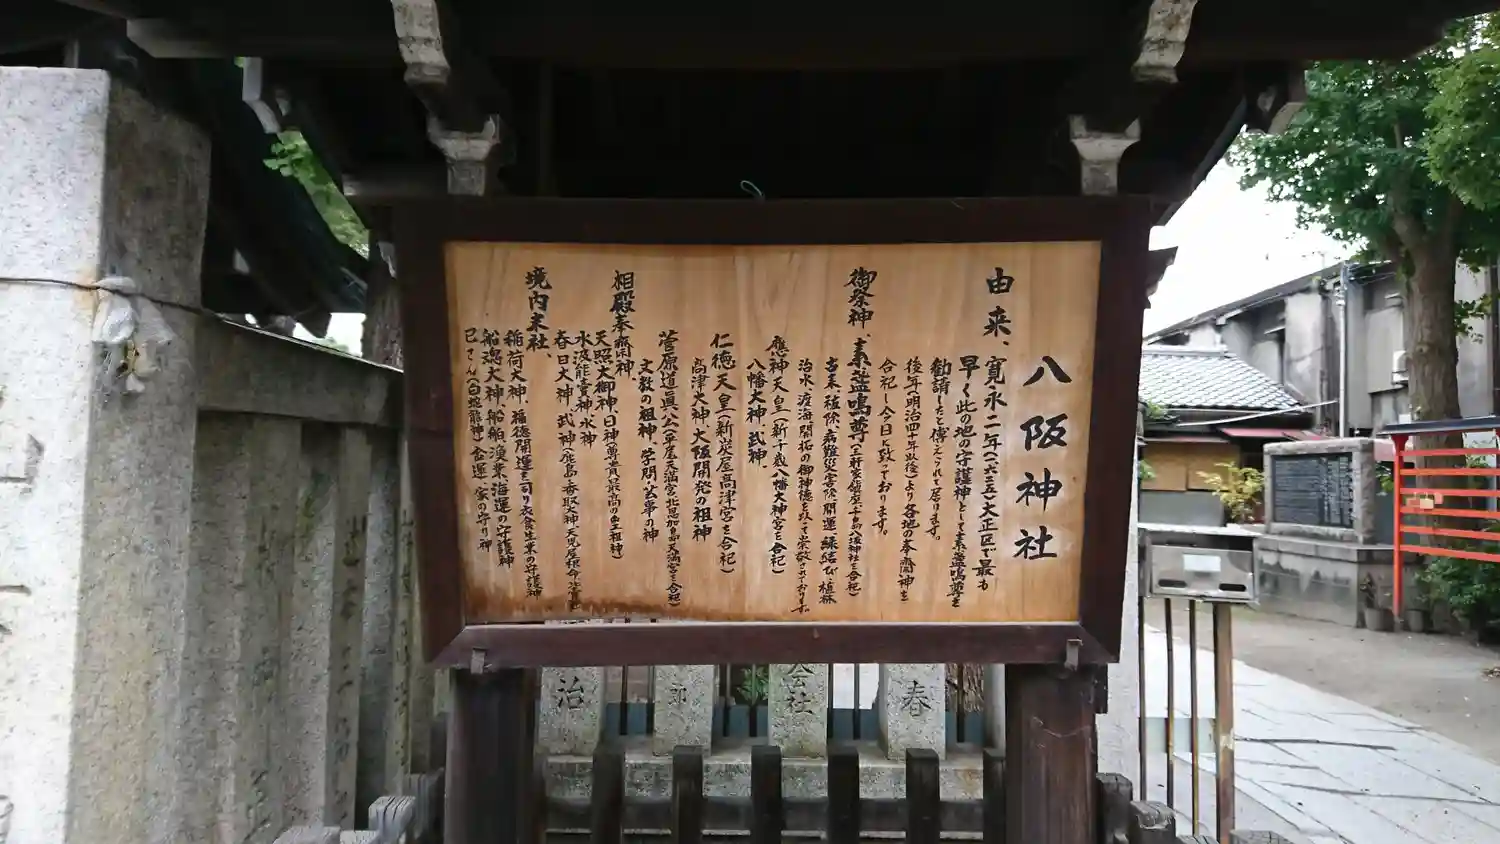 八阪神社
由来、寛永二年(一六二五)大正区で最も
早く此の地の守護神として素盞嗚尊を
勧請したと傳えられて居ります。
後年(明治四十年以後)より各地の奉齋神を
合祀し今日に致っております。
御祭神、素盞嗚尊(三軒家鎮座、千島八坂神社を合祀)
古来、殖除、病難災害除、開運、縁結び、植林
治水、渡海開拓の御神徳を以て崇敬されております。
應神天皇(新千歳八幡大神宮を合祀)
八幡大神、武神、
仁徳天皇(新炭屋高津宮を合祀)
高津大神、大阪開発の祖神
菅原道眞公(平尾天満宮、北恩加島天満宮を合祀)
文教の祖神、学問、芸事の神
相殿奉齋神、
天照大御神、日神尊貴最高の皇祖神)
水波能賣神、水神
春日大神、武神(鹿島、香取大神、天児屋根命
境内末社、
稲荷大神、福徳開運を司り衣食生業の守護神
船魂大神、船舶、漁業、海運の守護神
巳さん(白蛇龍神)金運、家の守り神
治
郎
会社
春